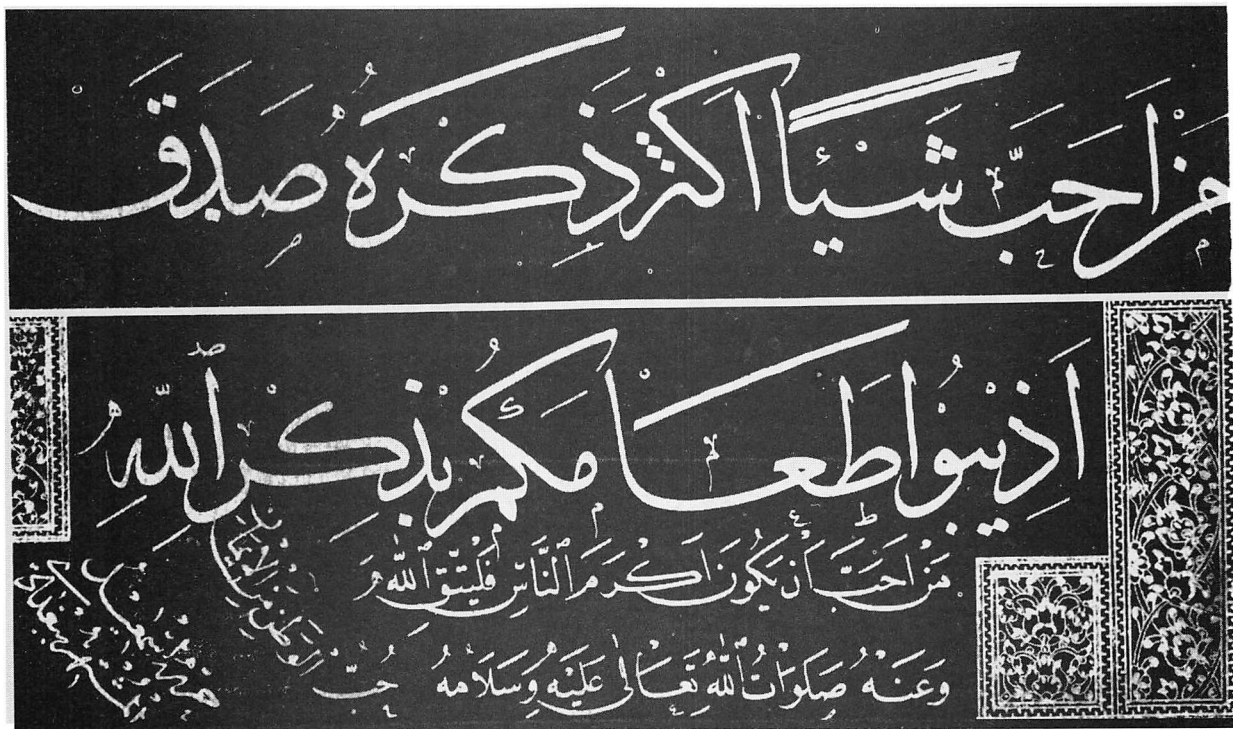 مَنْ اَحَبَّ شَيْئًا اَكْثَرَ ذِكْرَهُ صَدَقَ
اَذِيْبُوْا طَعَامَكُمْ بِذِكْرِ ٱللّٰهِ
مَنْ اَحَبَّ اَنْ يَكُونَ اَكْرَمَ ٱلنَّاسِ فَلْيَتَّقِ ٱللّٰهَ
وَعَنْهُ صَلَوَاتُ ٱللّٰهِ تَعَالٰى عَلَيْهِ وَسَلَامُهُ حُبُّ